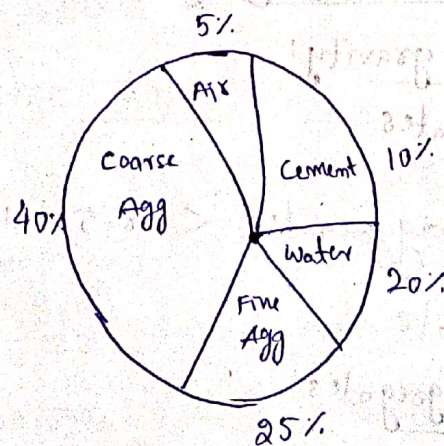 5%
Air
Coarse
Agg
Cement
10%
40%
Water
20%
Fine
Agg
25%